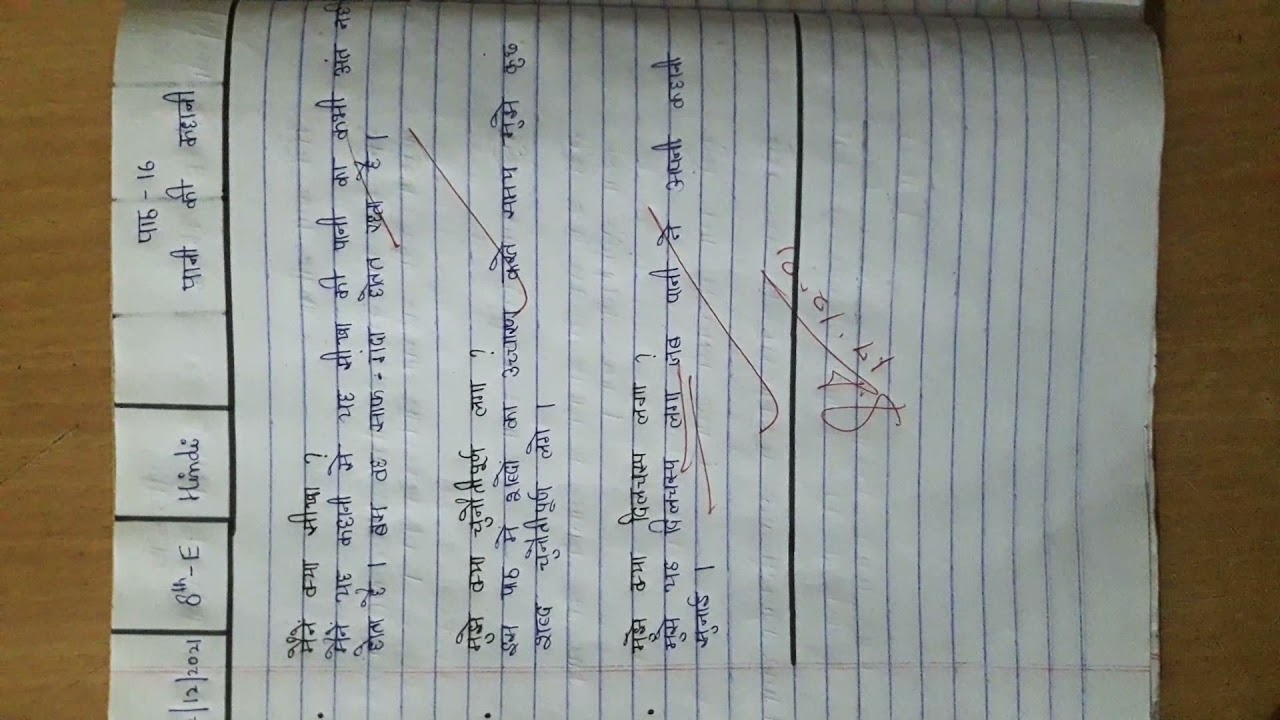 /12/2021 8th-E Hindi पाठ - 16
पानी की कहानी
मैंने क्या सीखा ?
मैंने यह कहानी से यह सीखा की पानी का कभी अंत नही
होत है । बस वह साफ - गंदा होत रहत है ।
मुझे क्या चुनौतीपूर्ण लगा ?
इस पाठ मे शब्दो का उच्चारण करते समय मुझे कुछ
शब्द चुनौतीपूर्ण लगे ।
मुझे क्या दिलचस्प लगा ?
मुझे यह दिलचस्प लगा जब पानी ने अपनी कहानी
सुनाई ।